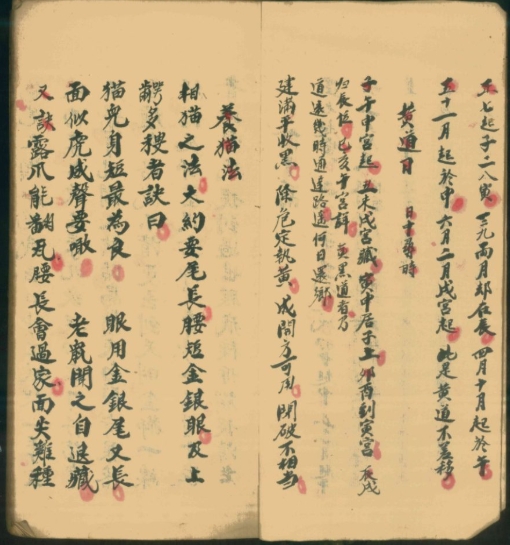 正七起子二八寅 三九兩月却在辰 四月十月起於午
五十一月起於申 六月二月戌宮起 此是黃道不差移
黃道日 日中尋時
子午申宮起 丑未戌宮藏 寅申居子上 卯酉到寅宮 辰戌
歸辰位 巳亥午宮詳 黃黑道有方
道遠幾時通達 路遙何日還鄉
建滿平收黑 除危定執黃 成開方可用 閉破不相當
養猫法
相猫之法大約要尾長腰短金銀眼及上
齶多稜者訣曰
猫兒身短最為良 眼用金銀尾又長
面似虎威聲要噉 老鼠聞之自退藏
又訣露爪能翻瓦腰長會過家面尖雞種